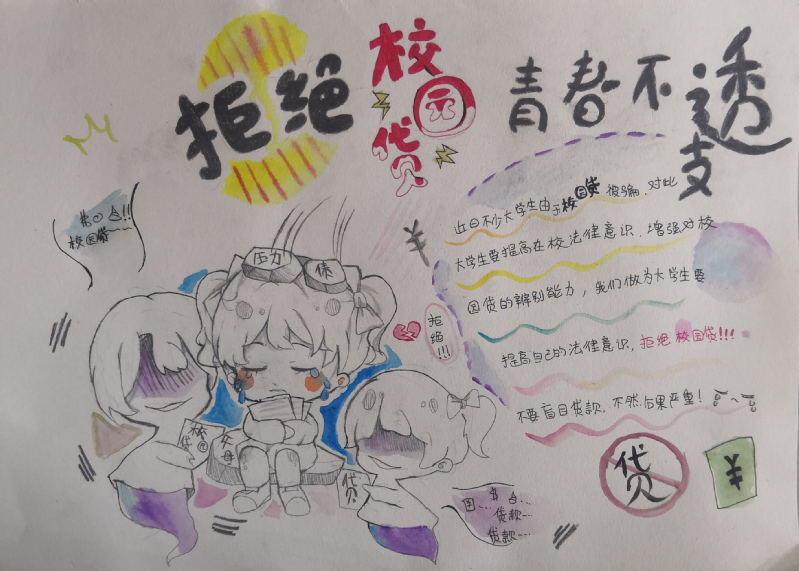 拒绝校园贷 青春不透支
近日不少大学生由于校园贷被骗.对比
大学生要提高在校法律意识.增强对校
园贷的辨别能力,我们做为大学生要
提高自己的法律意识,拒绝校园贷!!!
不要盲目贷款,不然后果严重!
校园贷~~
¥
拒绝!!!
压力
债
校园贷
父母
贷
贷款…
贷款…
贷
¥